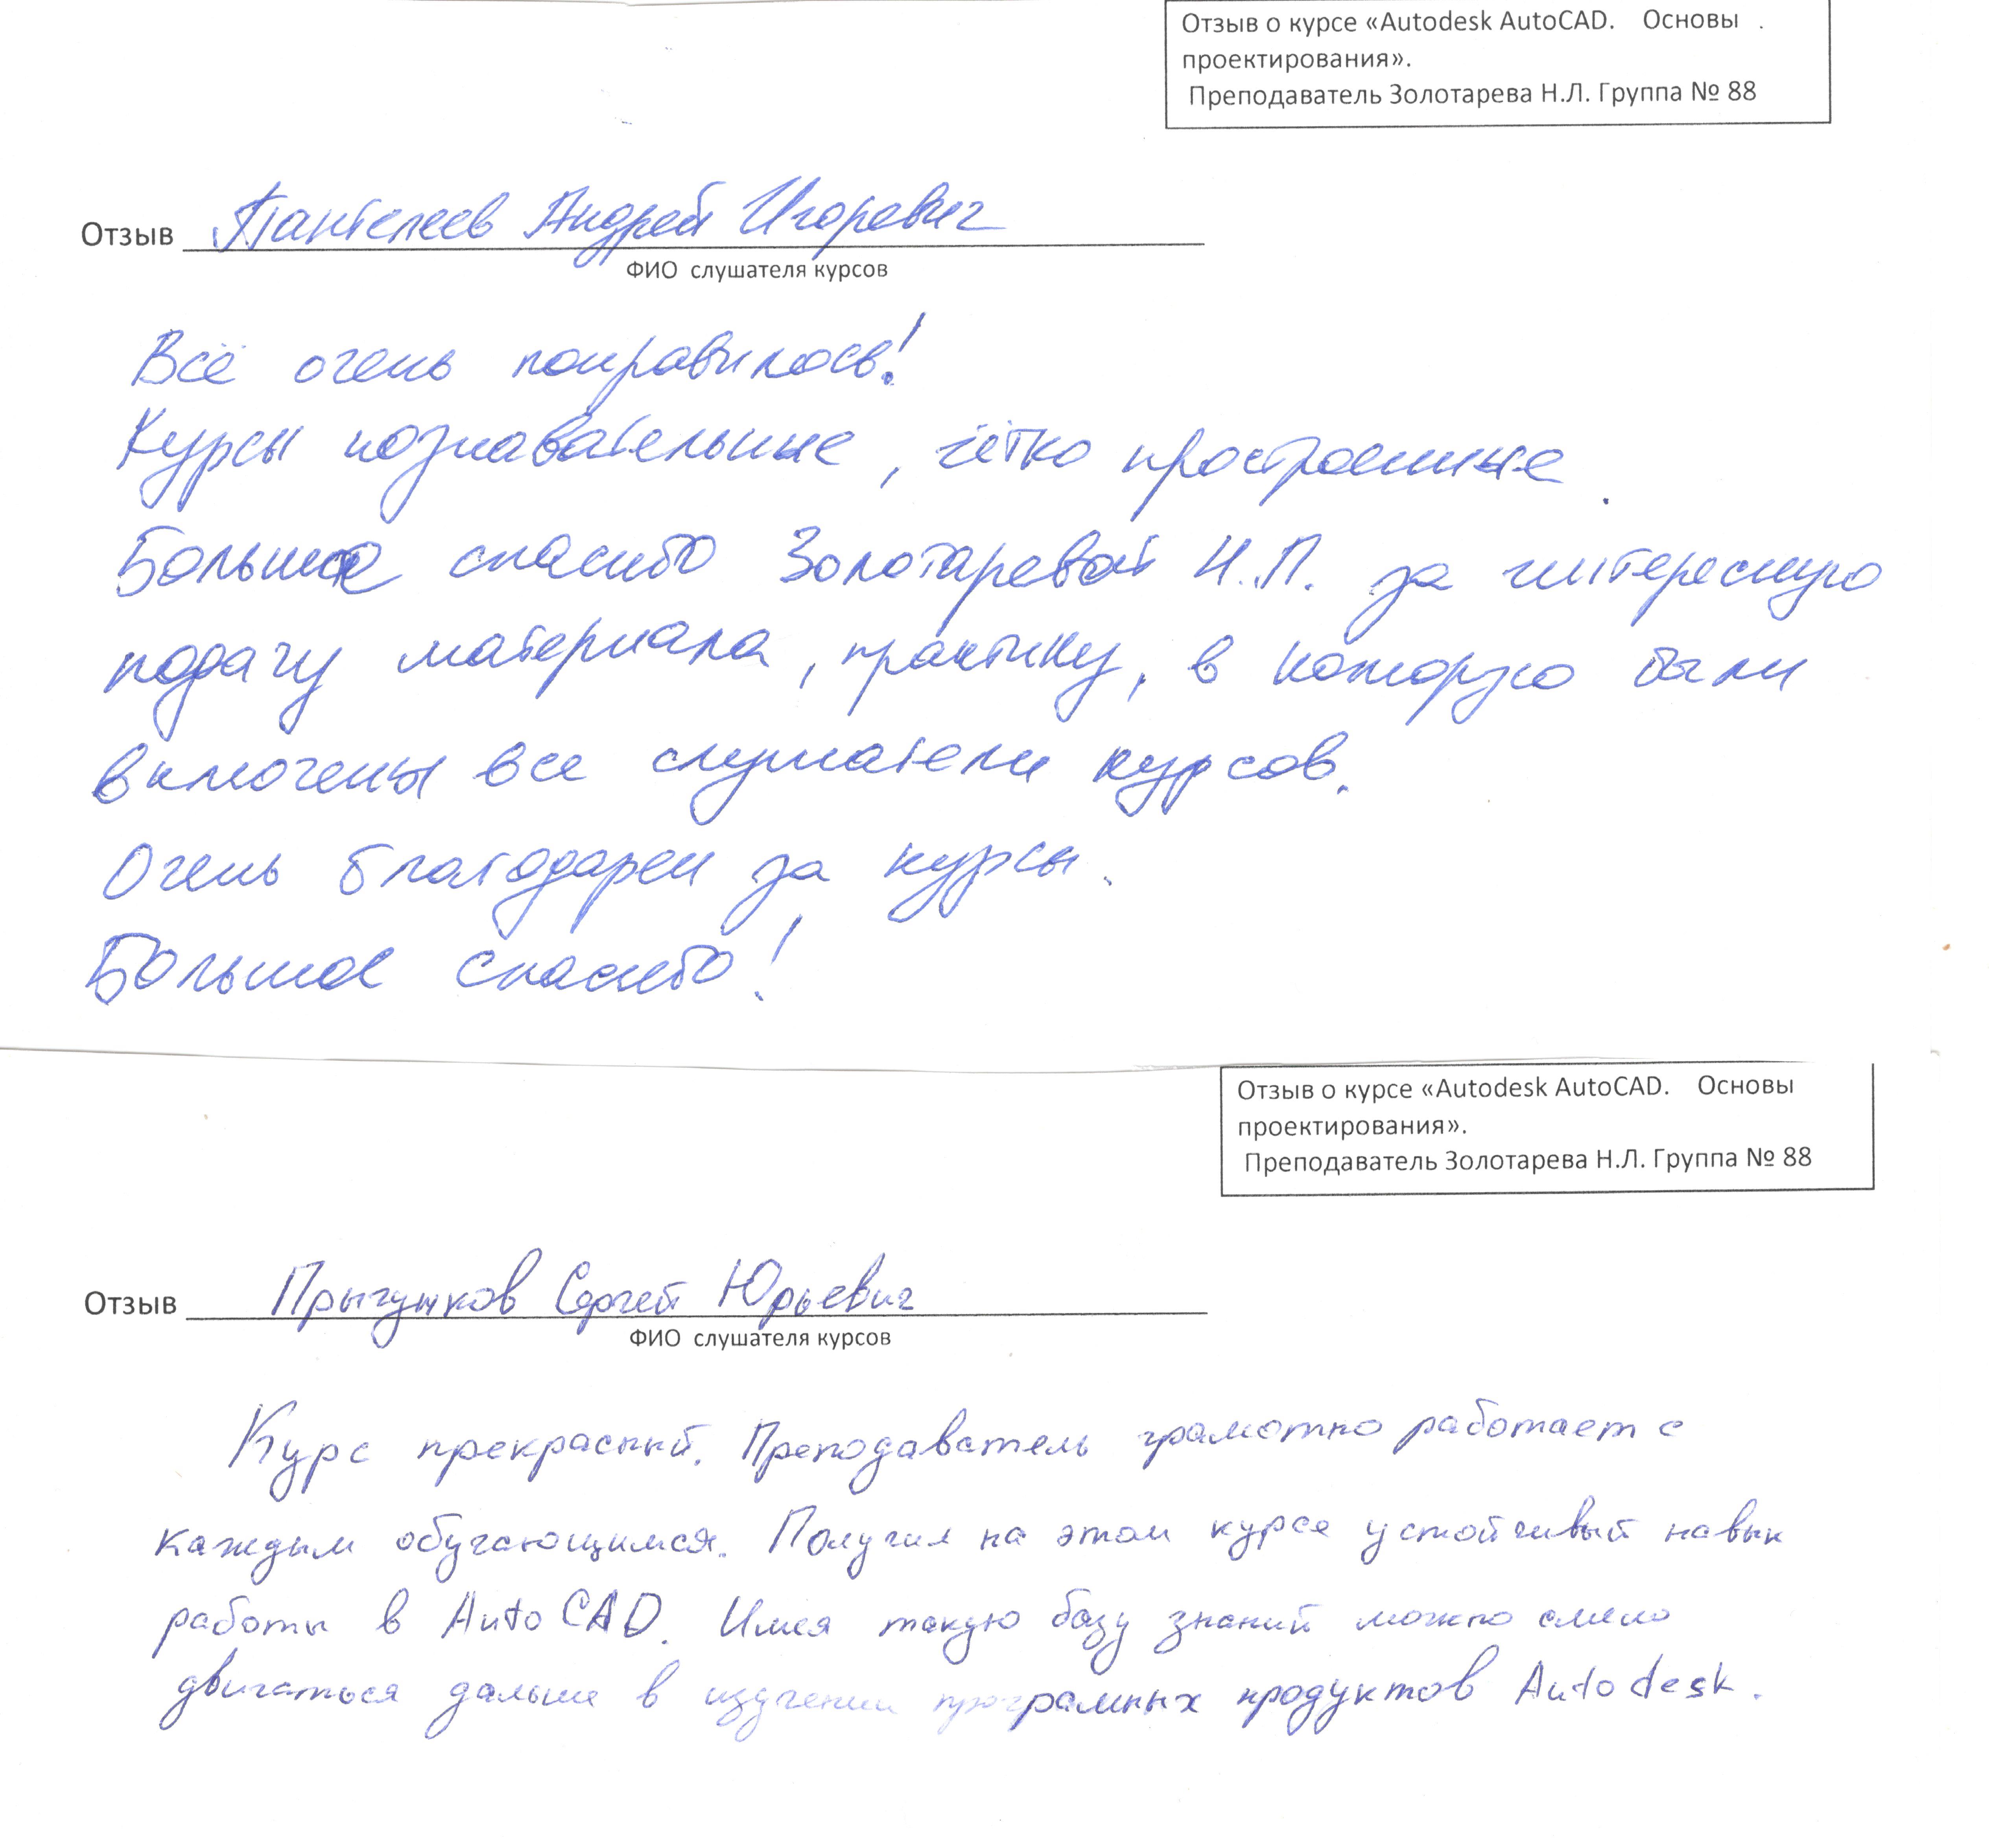 Отзыв о курсе «Autodesk AutoCAD. Основы
проектирования».
Преподаватель Золотарева Н.Л. Группа № 88
Отзыв Пантелеев Андрей Игоревич
ФИО слушателя курсов
Всё очень понравилось!
Курсы познавательные, чётко простроенные.
Большое спасибо Золотаревой Н.Л. за интересную
подачу материала, практику, в которую были
включены все слушатели курсов.
Очень благодарен за курсы.
Большое спасибо!
Отзыв о курсе «Autodesk AutoCAD. Основы
проектирования».
Преподаватель Золотарева Н.Л. Группа № 88
Отзыв Прыгунков Сергей Юрьевич
ФИО слушателя курсов
Курс прекрасный. Преподаватель грамотно работает с
каждым обучающимся. Получил на этом курсе устойчивый навык
работы в AutoCAD. Имея такую базу знаний можно смело
двигаться дальше в изучении програмных продуктов Autodesk.